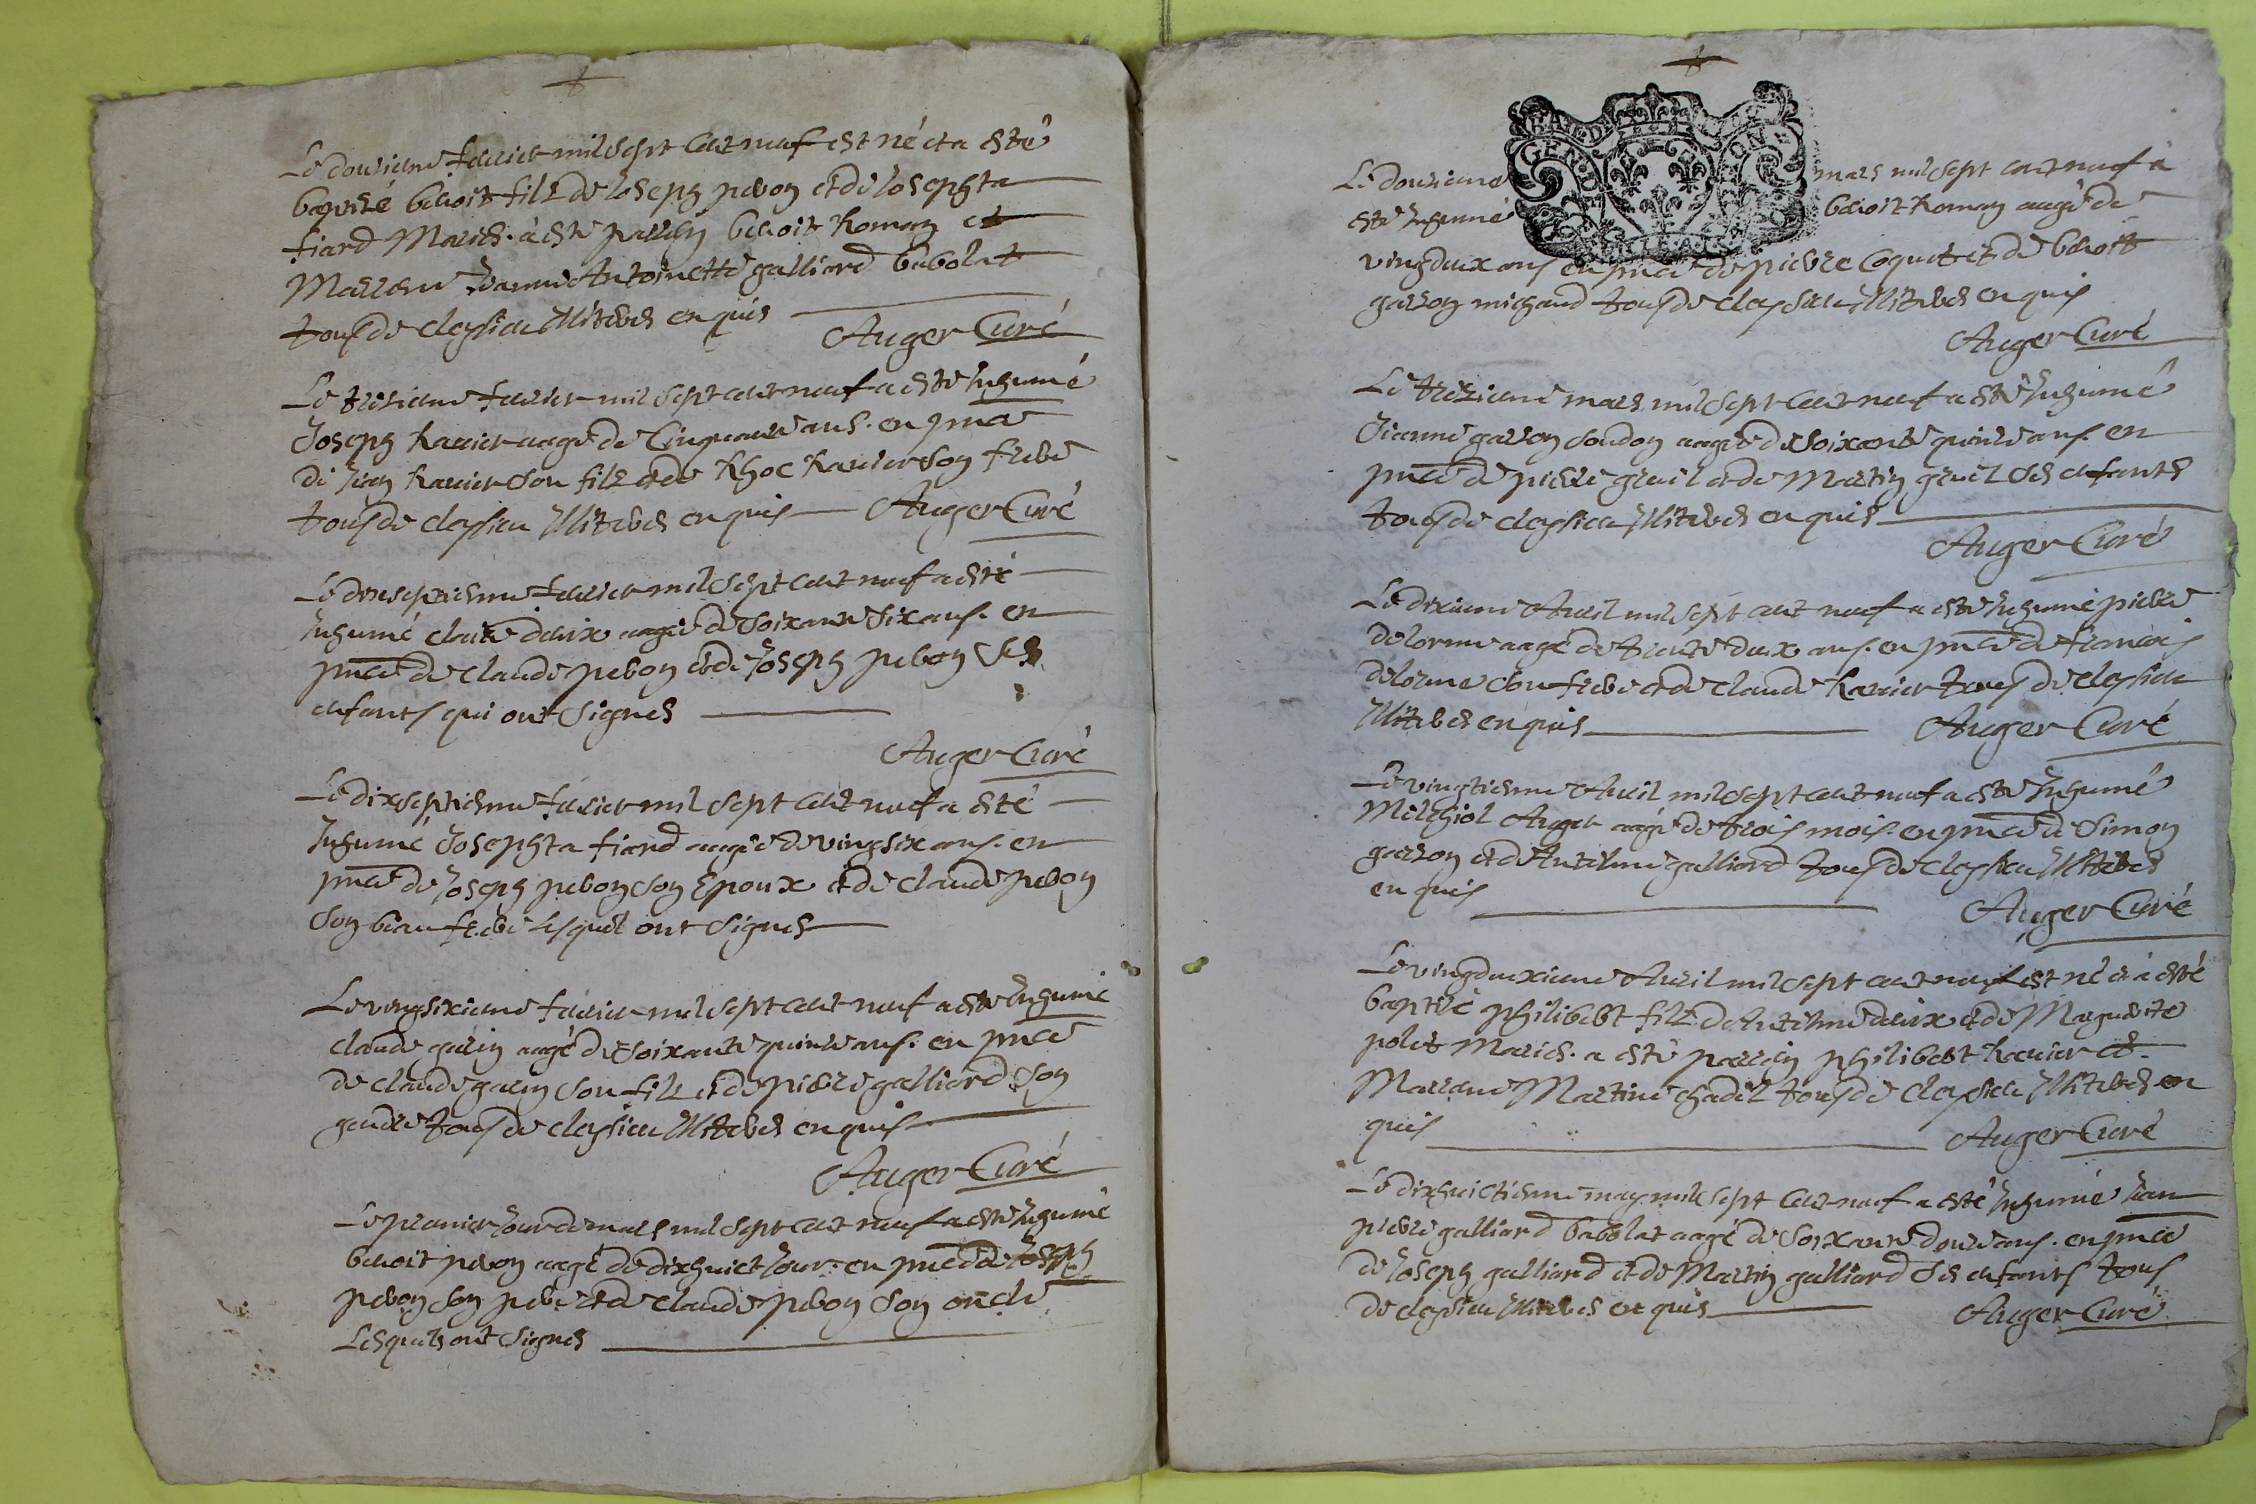 Le douzieme feurier mil sept cent neuf est né et a esté
baptizé benoit filz de Joseph pebon et de Josephta
fiard Mariés. à esté parrein benoit Roman et
Marrene Jeanne Antoinette galliard babolat
tous de cleyssieu Illiterés enquis
Auger Curé
Le treisieme feurier mil sept cent neuf a esté Inhumé
Joseph Rauier aagé de Cinquante ans. en pnce
de Jean Rauier son filz et de Rhoc Rauier son frere
tous de cleyssieu Illiterés enquis Auger Curé
Le dixseptiesme feurier mil sept cent neuf a esté
Inhumé claire deuix aagée de soixante six ans. en
pnce de claude pebon et de Joseph pebon ses
enfants qui ont signés
Auger Curé
Le dixseptiesme feurier mil sept cent neuf a esté
Inhumé Josephta fiard aagée de vingsix ans. en
pnce de Joseph pebon son Epoux et de claude pebon
son beaufrere lesquel ont signés
Le vingsixieme feurier mil sept cent neuf a esté Inhumé
claude garin aagé de soixante quinze ans. en pnce
de claude garin son filz et de pierre galliard son
gendre tous de cleyssieu Illiterés enquis
Auger Curé
Le premier Jour de mars mil sept cent neuf a esté Inhumé
benoit pebon aagé de dixhuict Jour. en pnce de Joseph
pebon son pere et de claude pebon son oncle
Lesquels ont signés
Le douzieme mars mil sept cent neuf a
esté Inhumé benoit Roman aagé de
vingdeux ans en pnce de pierre Coquet et de benoit
garson michaud tous de cleyssieu Illiterés enquis
Auger Curé
Le treizieme mars mil sept cent neuf a esté Inhumé
Jeanne garson soudon aagée de soixante quinze ans. en
pnce de pierre gruil et de Martin gruel ses enfants
tous de cleyssieu Illiterés enquis
Auger Curé
Le dixieme Auril mil sept cent neuf a esté Inhumé pierre
delorme aagé de trente deux ans. en pnce de francois
delorme son frere et de claude Rauier tous de cleyssieu
Illiterés enquis Auger Curé
Le vingtiesme Auril mil sept cent neuf a esté Inhumé
Melchiol Auger aagé de trois mois. en pnce de Simon
garson et d'Antelme galliard tous de cleyssieu Illiterés
enquis
Auger Curé
Le vingdeuxieme Auril mil sept cent neuf est né et à esté
baptisé philibert filz d'Antelme deuix et de Marguerite
polet Mariés. a esté parrein philibert Rauier et
Marrene Martine chadel tous de cleyssieu Illiterés en
quis Auger Curé
Le dixhuictiesme may mil sept cent neuf a esté Inhumé Jean
pierre galliard babolat aagé de soixante douze ans. en pnce
de Joseph galliard et de Martin galliard ses enfants tous
de cleyssieu Illiterés enquis Auger Curé